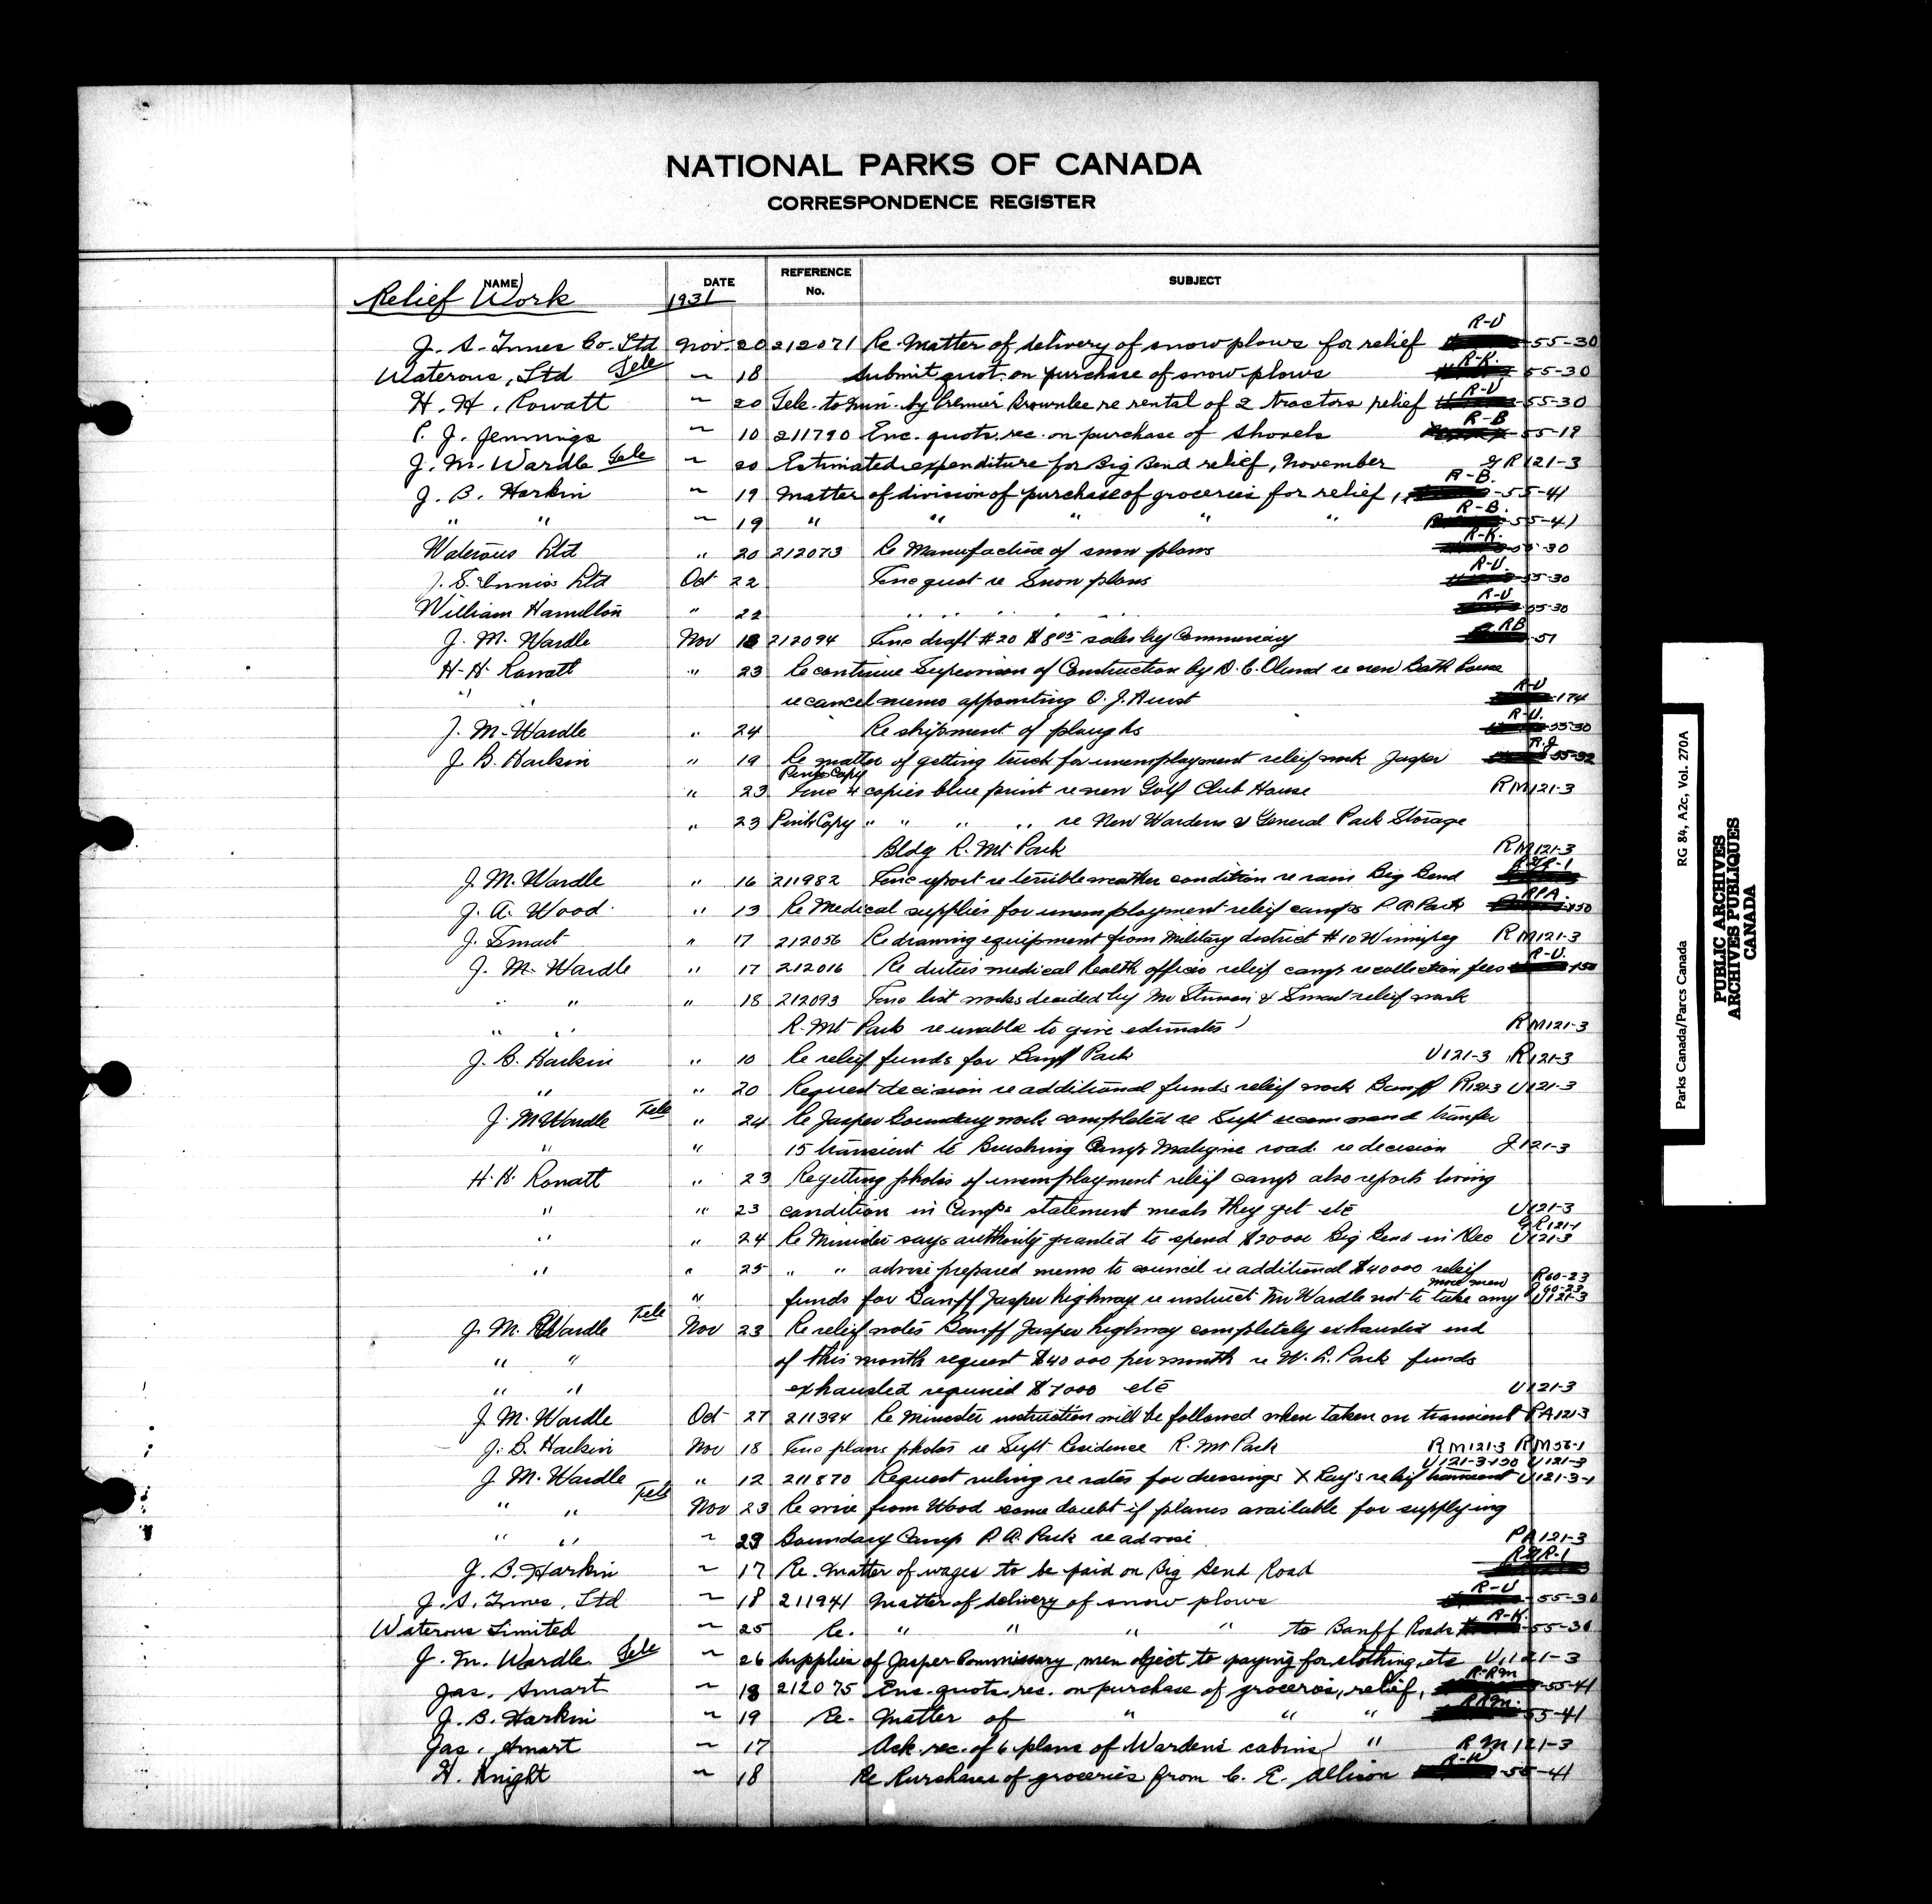 NATIONAL PARKS OF CANADA
CORRESPONDENCE REGISTER
NAME DATE REFERENCE No. SUBJECT
Relief Work 1931
J. S. Innes Co. Ltd Nov. 20 212071 Re Matter of delivery of snow plows for relief R-U 55-30
Waterous, Ltd Tele " 18 Submit quot. on purchase of snow plows R-K. 55-30
H. H. Rowatt " 20 Tele. to Min. by Premier Brownlee re rental of 2 tractors relief R-U 55-30
P. J. Jennings " 10 211790 Enc. quots. rec. on purchase of shovels R-B 55-19
J. M. Wardle Tele " 20 Estimated expenditure for Big Bend relief, November GR121-3
J. B. Harkin " 19 Matter of division of purchase of groceries for relief, R-B. 55-41
" " " 19 " " " " " R-B. 55-41
Waterous Ltd " 20 212073 Re Manufacture of snow plows R-K. 55-30
J. S. Innis Ltd Oct 22 Enc quot re Snow plows R-U. 55-30
William Hamilton " 22 " " " " " " R-U 55-30
J. M. Wardle Nov 18 212094 Enc draft #20 $8.05 sales by Commissary RB 51
H. H. Rowatt " 23 Re continue Supervision of Construction by D. C. Olund re new Bath house
" " re cancel memo appointing O. J. Hurst R-U 174
J. M. Wardle " 24 Re shipment of ploughs R-U. 55-30
J B. Harkin " 19 Re matter of getting truck for unemployment relief work Jasper R.J 55-32
" 23 Pink Copy Enc 4 copies blue print re new Golf Club House RM121-3
" 23 Pink Copy " " " " re New Wardens & General Park Storage
Bldg R. Mt Park RM121-3
J. M. Wardle " 16 211982 Enc report re terrible weather condition re rains Big Bend RGR-1
J. A. Wood " 13 Re Medical supplies for unemployment relief camps P. A. Park RPA 150
J. Smart " 17 212056 Re drawing equipment from Military district #10 Winnipeg RM121-3
J. M. Wardle " 17 212016 Re duties medical health officer relief camp re collection fees R-U. 150
" " " 18 212093 Enc list works decided by Mr & Smart relief work
" " R. Mt Park re unable to give estimates RM121-3
J. B. Harkin " 10 Re relief funds for Banff Park U121-3 R121-3
" " 20 Request decision re additional funds relief work Banff R121-3 U121-3
J. M Wardle Tele " 24 Re Jasper Boundary work completed re Supt recommend transfer
" " 15 transient to Brushing Camp Maligne road. re decision J121-3
H. H. Rowatt " 23 Re getting photos of unemployment relief camps also reports living
" " 23 condition in Camps statement meals they get etc U121-3
" " 24 Re Minister says authority granted to spend $20000 Big Bend in Dec GR121-1 U121-3
" " 25 " " advise prepared memo to council re additional $40000 relief R60-23
" funds for Banff Jasper highway re instruct Mr Wardle not to take any more men J60-23 U121-3
J. M. Wardle Tele Nov 23 Re relief notes Banff Jasper highway completely exhausted end
" " of this month request $40000 per month re W. L. Park funds
" " exhausted required $7000 etc U121-3
J. M. Wardle Oct 27 211394 Re Minister instruction will be followed when taken on transient PA121-3
J. B. Harkin Nov 18 Enc plans photos re Supt Residence R. Mt Park RM121-3 RM56-1
J. M. Wardle " 12 211870 Request ruling re rates for dressings X Ray's relief transient U121-3-150 U121-3 U121-3-1
" " Tele Nov 23 Re wire from Wood some doubt if planes available for supplying
" " " 23 Boundary Camp P. A. Park re advise PA121-3
J. B. Harkin " 17 Re. Matter of wages to be paid on Big Bend Road RGR-1
J. S. Innes, Ltd " 18 211941 Matter of delivery of snow plows R-U 55-30
Waterous Limited " 25 Re. " " " " to Banff Roads R-K. 55-30
J. M. Wardle Tele " 26 Supplies of Jasper Commissary, men object to paying for clothing, etc U121-3
Jas. Smart " 18 212075 Enc. quots. rec. on purchase of groceries, relief, R-RM 55-41
J. B. Harkin " 19 Re. Matter of " " " RRM. 55-41
Jas. Smart " 17 Ack. rec. of 6 plans of Wardens cabins " RM121-3
H. Knight " 18 Re Purchases of groceries from C. E. Allison R-W 55-41
Parks Canada/Parcs Canada RG 84, A2c, Vol. 270A
PUBLIC ARCHIVES
ARCHIVES PUBLIQUES
CANADA